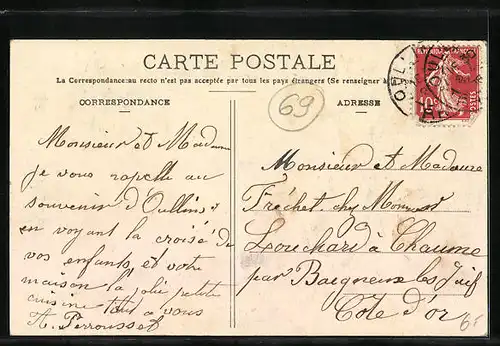 CARTE POSTALE
La Correspondance au recto n'est pas acceptée par tous les pays étrangers (Se renseigner à
CORRESPONDANCE
ADRESSE
69
Monsieur et Madame
je vous rapelle au
souvenir d'Oullins
en voyant la croisé de
vos enfants et votre
maison la jolie petite
cuisine tout a vous
A. Perrousset
Monsieur et Madame
Fréchet chez
Louchard à Chaume
par Baigneux les Juif
Côte d'or
10
POSTES